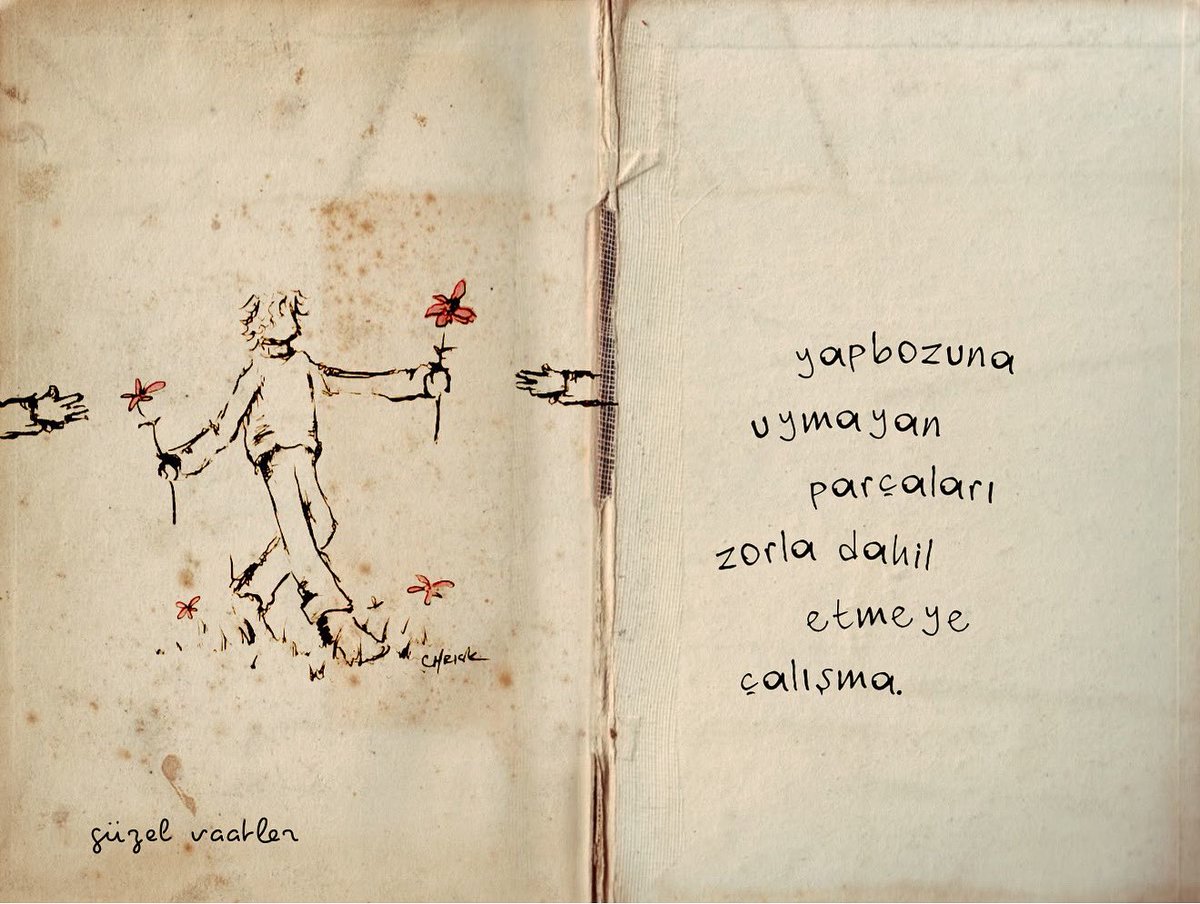 güzel vaatler
yapbozuna
uymayan
parçaları
zorla dahil
etmeye
çalışma.